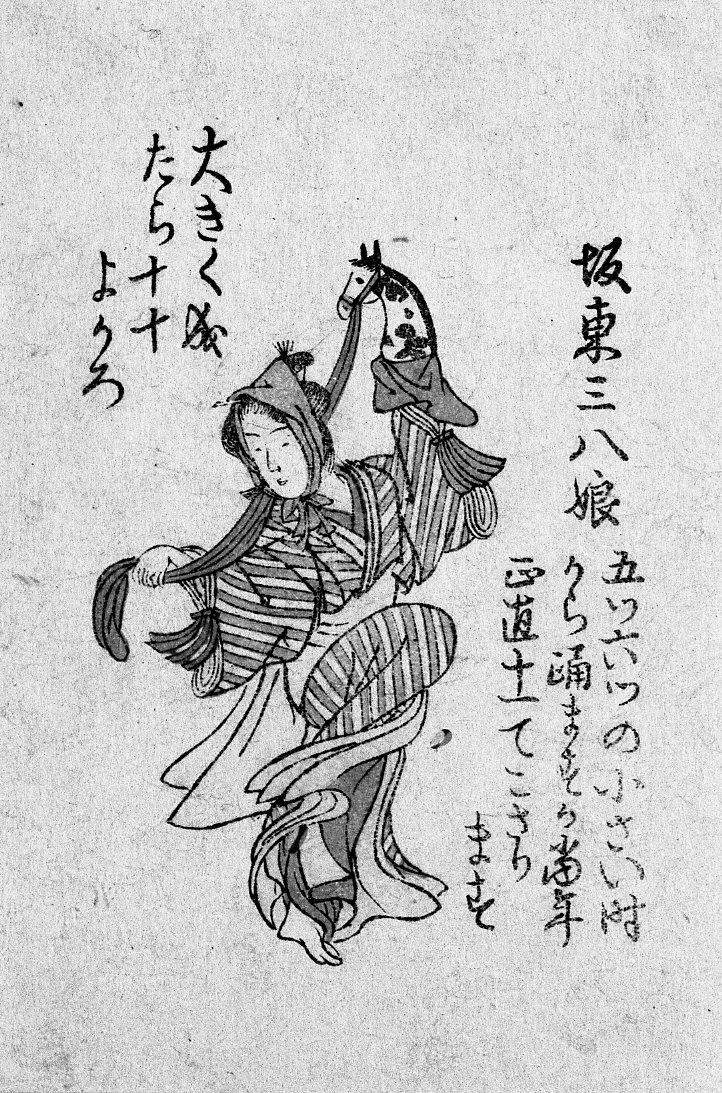 坂東三八娘
五ツ六ツの小さい時
から踊ますか当年
正直十一てこさり
ます
大きく成
たら十十
よかろ